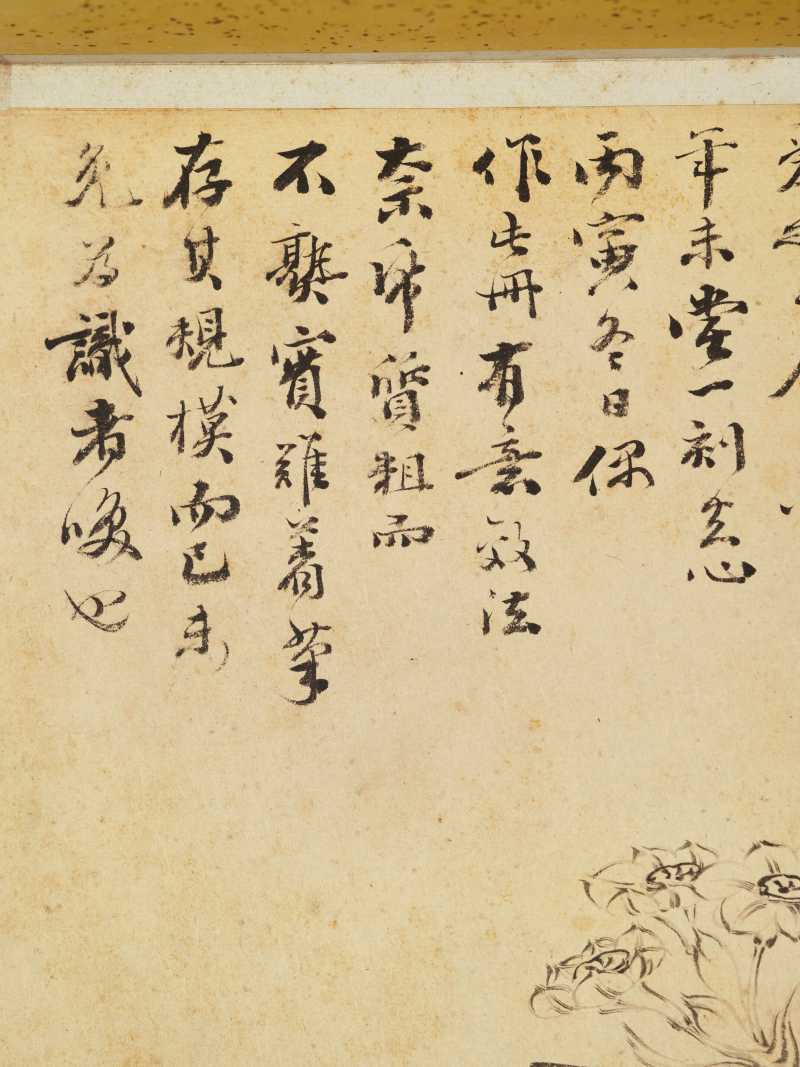 年未嘗一刻忘
丙寅冬日偶
作此冊有意效法
奈帋質粗而
不熟實難着筆
存其規模而已未
免為識者唉也